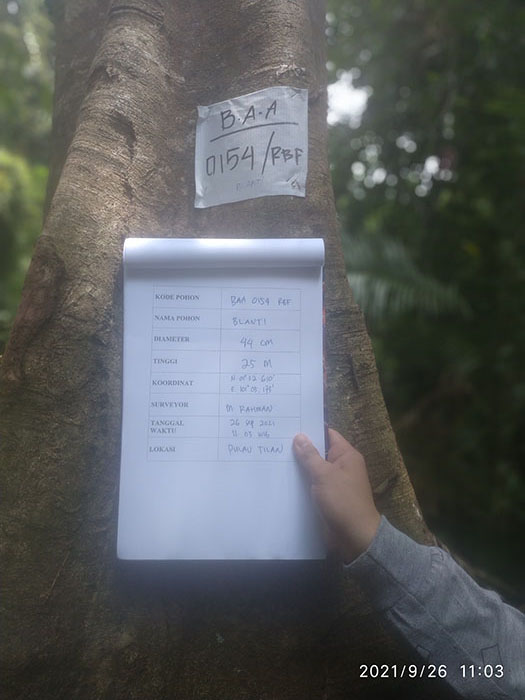 B.A.A
0154/RBF
KODE POHON BAA 0154 RBF
NAMA POHON BLANTI
DIAMETER 44 CM
TINGGI 25 M
KOORDINAT
SURVEYOR M RAHMAN
TANGGAL 26 2021
WAKTU 11.03 WIB
LOKASI PULAU TILAN
2021/9/26 11:03